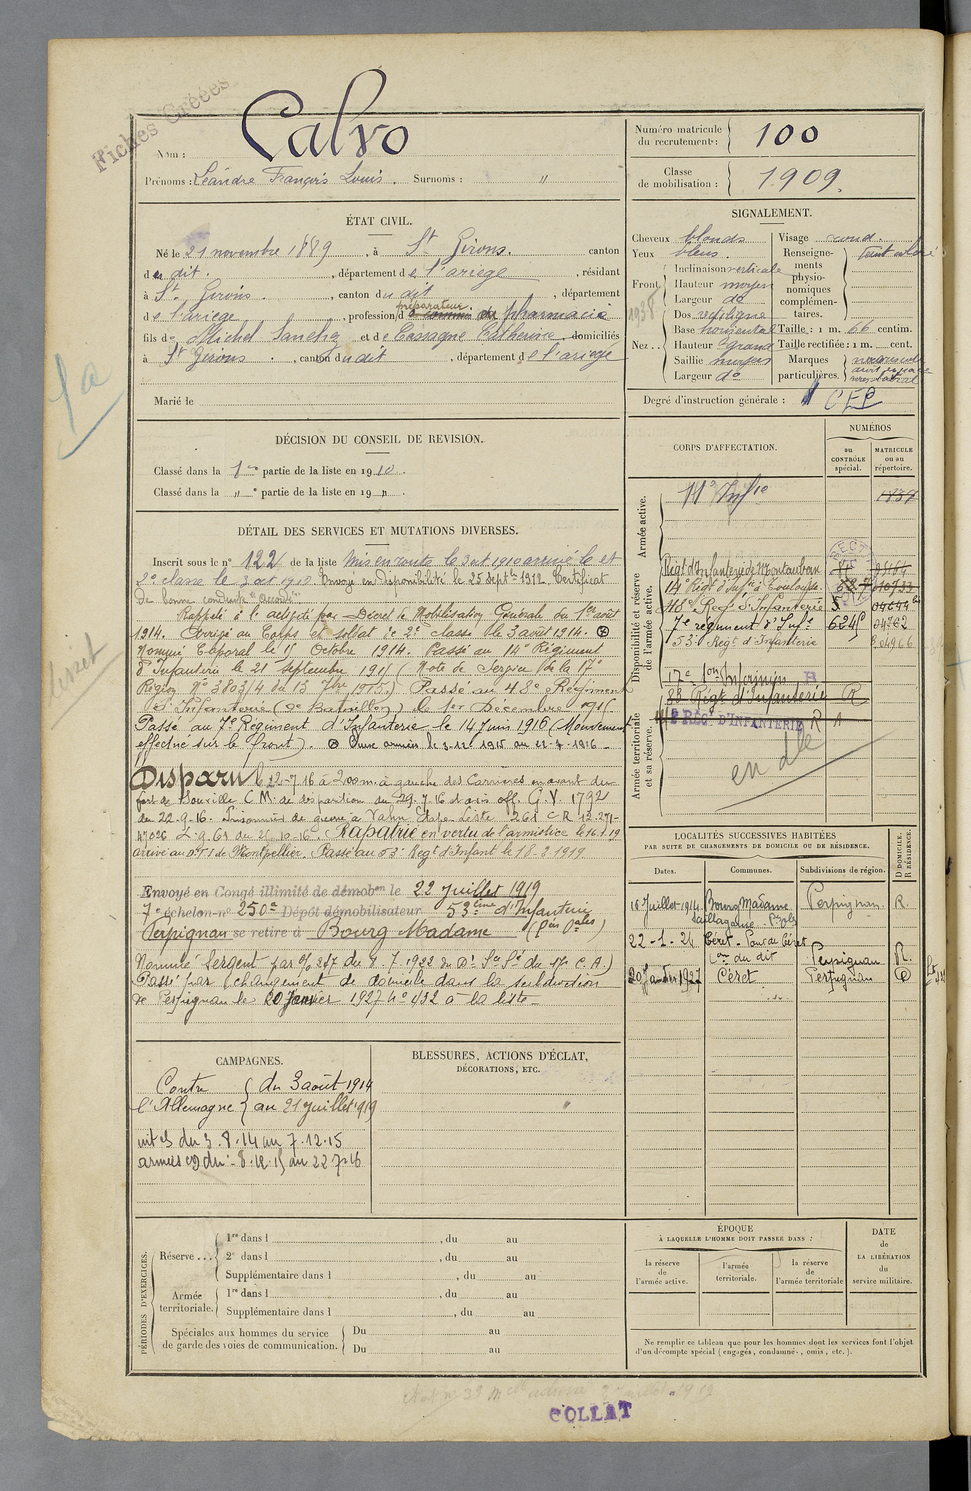 Fiches Créées
Nom : Calvo
Prénoms : Léandre François Louis. Surnoms : "
Numéro matricule du recrutement : 100
Classe de mobilisation : 1909.
ÉTAT CIVIL.
Né le 21 novembre 1889, à St Girons. canton
du dit., département de l'ariège, résidant
à St Girons., canton du dit, département
de l'ariège, profession d préparateur en pharmacie
fils de Michel Sanchez et de Cassagne Catherine, domiciliés
à St Girons., canton du dit, département de l'ariège
Marié le
SIGNALEMENT.
Cheveux blonds
Yeux bleus.
Front Inclinaison verticale
Hauteur moyen
Largeur do
Nez Dos rectiligne
Base horizontal
Hauteur grand
Saillie moyen
Largeur do
Visage rond.
Renseignements physionomiques complémentaires. Teint coloré
Taille : 1 m. 66 centim.
Taille rectifiée : 1 m. cent.
Marques particulières.
1938
Degré d'instruction générale : CEP
1a
DÉCISION DU CONSEIL DE REVISION.
Classé dans la 1re partie de la liste en 1910.
Classé dans la " e partie de la liste en 19 "
DÉTAIL DES SERVICES ET MUTATIONS DIVERSES.
Inscrit sous le no 122 de la liste Mis en route le 3 oct 1910 arrivé le et
2e classe le 3 oct 1910. Envoyé en disponibilité le 25 Septbre 1912. Certificat
de bonne conduite accordé.
Rappelé à l'activité par Décret de Mobilisation Générale du 1er août
1914. Arrivé au Corps et soldat de 2e classe le 3 août 1914.
Nommé Caporal le 15 Octobre 1914. Passé au 14e Régiment
d'Infanterie le 21 Septembre 1915 (Note de Service de la 17e
Région No 3803/4 du 13 7bre 1915.) Passé au 48e Régiment
d'Infanterie (9e Bataillon) le 1er Décembre 1915.
Passé au 7e Régiment d'Infanterie le 14 juin 1916 (Mouvement
effectué sur le front). Aux armées le 3-12-1915 au 22-7-1916
Disparu le 22-7-16 à 200m à gauche des Carrières en avant du
fort de Souville C.M. de disparition du 29.7.16 et avis off. G.V. 1792
du 22-9-16. Prisonnier de guerre à Hahn Liste 268 CR 12.271-
Rapatrié en vertu de l'armistice le 16.1.19
arrivé au D.T.I de Montpellier. Passé au 53e Régt d'Infant le 18-3-1919.
Envoyé en Congé illimité de démobon le 22 Juillet 1919
7e échelon no 250a Dépôt démobilisateur 53ème d'Infanterie
Perpignan se retire à Bourg Madame (Pées Orales)
Nommé Sergent par 267 du 8.7.1922 du 17e C.A.)
Passé par changement de domicile dans la subdivision
de Perpignan le 20 Janvier 1927 No 432 à la liste
CORPS D'AFFECTATION.
NUMÉROS
au CONTRÔLE spécial.
MATRICULE ou au répertoire.
Armée active.
Infie
1838
Disponibilité et réserve de l'armée active.
Régt d'Infanterie de Montauban
14e Régt d'Infie à Toulouse
48e Régt d'Infanterie
7e régiment d'Infie 04762
53e Régt d'Infanterie
17e Son Infirmiers B
88 Régt d'Infanterie (R)
Armée territoriale et sa réserve.
RÉGt D'INFANTERIE R A
en dle
LOCALITÉS SUCCESSIVES HABITÉES
PAR SUITE DE CHANGEMENTS DE DOMICILE OU DE RÉSIDENCE.
Dates. Communes. Subdivisions de région. D. DOMICILE. R. RÉSIDENCE.
18 Juillet 1914 Bourg Madame Perpignan. R.
Saillagouse
22-1-26 Céret
Con du dit Perpignan R.
20 Janvier 1927 Céret Perpignan D
CAMPAGNES.
Contre l'Allemagne { du 3 août 1914
au 21 Juillet 1919
int CS du 3.8.14 au 7.12.15
armées CD du 8.12.15 au 22.7.16
BLESSURES, ACTIONS D'ÉCLAT,
DÉCORATIONS, ETC.
PÉRIODES D'EXERCICES.
Réserve ... 1re dans l , du au
2e dans l , du au
Supplémentaire dans l , du au
Armée territoriale. 1re dans l , du au
Supplémentaire dans l , du au
Spéciales aux hommes du service de garde des voies de communication. Du au
Du au
ÉPOQUE
À LAQUELLE L'HOMME DOIT PASSER DANS :
la réserve de l'armée active.
l'armée territoriale.
la réserve de l'armée territoriale
DATE de LA LIBÉRATION du service militaire.
Ne remplir ce tableau que pour les hommes dont les services font l'objet
d'un décompte spécial (engagés, condamnés, omis, etc.).
COLLAT